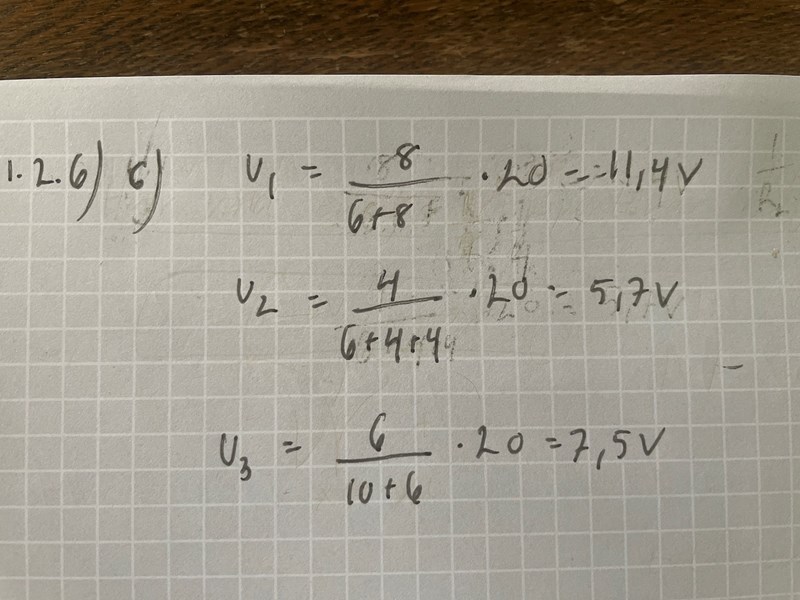 1.2.6) c) U₁ = 8/(6+8) · 20 = 11,4 V
U₂ = 4/(6+4+4) · 20 = 5,7 V
U₃ = 6/(10+6) · 20 = 7,5 V